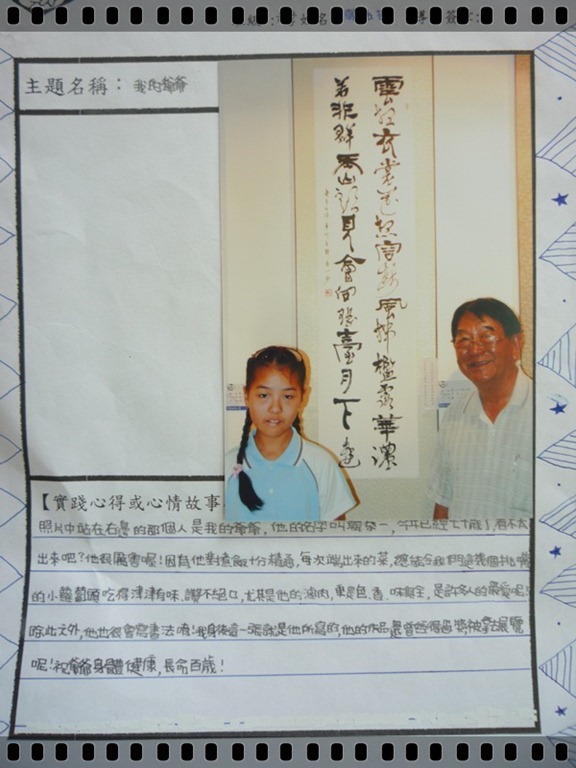 姓名
簽名:
主題名稱：我的爺爺
雲想衣裳花想容春風拂檻露華濃
若非群玉山頭見會向瑤臺月下逢
【實踐心得或心情故事
照片中站在右邊的那個人是我的爺爺，他的名字叫，今年已經七十歲了，看不太
出來吧？他很厲害喔！因為他對煮飯十分精通，每次端出來的菜，總能令我們這幾個挑嘴
的小蘿蔔頭吃得津津有味、讚不絕口，尤其是他的滷肉，更是色、香、味俱全，是許多人的最愛呢！
除此之外，他也很會寫書法唷！我身後這一張就是他所寫的，他的作品還曾經得過獎被拿去展覽
呢！祝爺爺身體健康，長命百歲！